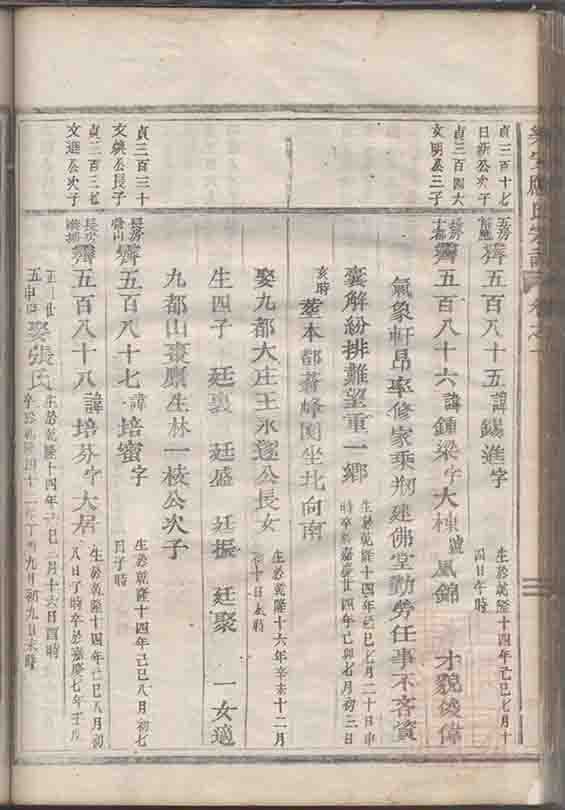 貞三百十七
日新公次子
五房
齊五百八十五諱錫進字
生於乾隆十四年己巳七月十
四日午時
貞三百四六
文明公三子
長房
齊五百八十六諱鍾梁字大棟號鳳錦 才貌俊偉
氣象軒昂率修家乘捌建佛堂勤勞任事不吝資
囊解紛排難望重一鄉
生於乾隆十四年己巳七月二十日申
時卒於嘉慶廿四年己卯七月初三日
亥時
塟本都蒼峰園坐北向南
娶九都大庄王永公長女
生於乾隆十六年辛未十二月
十日未時
生四子 廷裏 廷盛 廷振 廷聚 一女適
九都山棗應生林一枝公次子
貞三百三十
文煥公長子
長房
齊五百八十七諱培蜜字
生於乾隆十四年己巳八月初七
日子時
貞二百三七
文進公次子
長房
齊五百八十八諱培芬字大居
生於乾隆十四年己巳八月初
八日子時卒於嘉慶七年壬戌
娶張氏
生於乾隆十四年己巳二月十六日酉時
卒於乾隆四十二年丁酉九月初九日未時